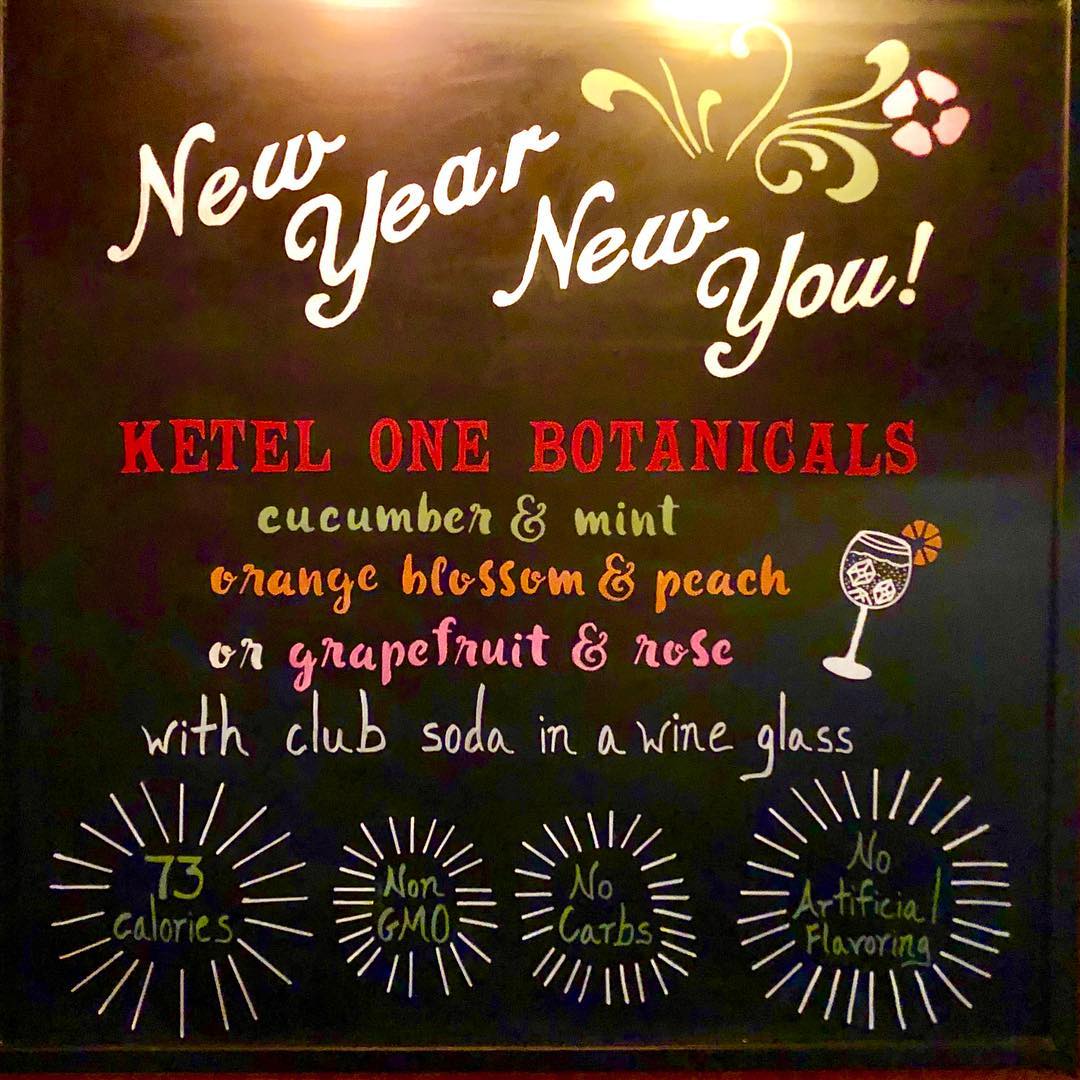 New Year New You!
KETEL ONE BOTANICALS
cucumber & mint
orange blossom & peach
or grapefruit & rose
with club soda in a wine glass
73
calories
Non
GMO
No
Carbs
No
Artificial
Flavoring